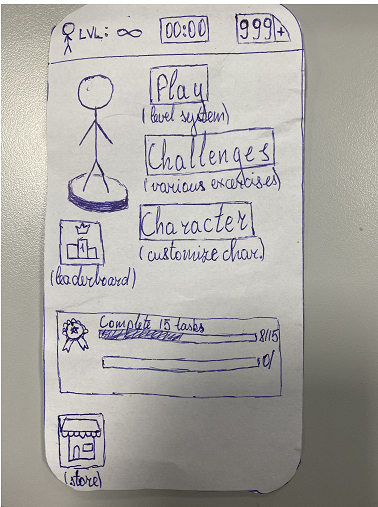 LVL: ∞ 00:00 999+
Play
(level system)
Challenges
(various excercises)
Character
(customize char.)
1
(leaderboard)
Complete 15 tasks
8/15
0/
(store)